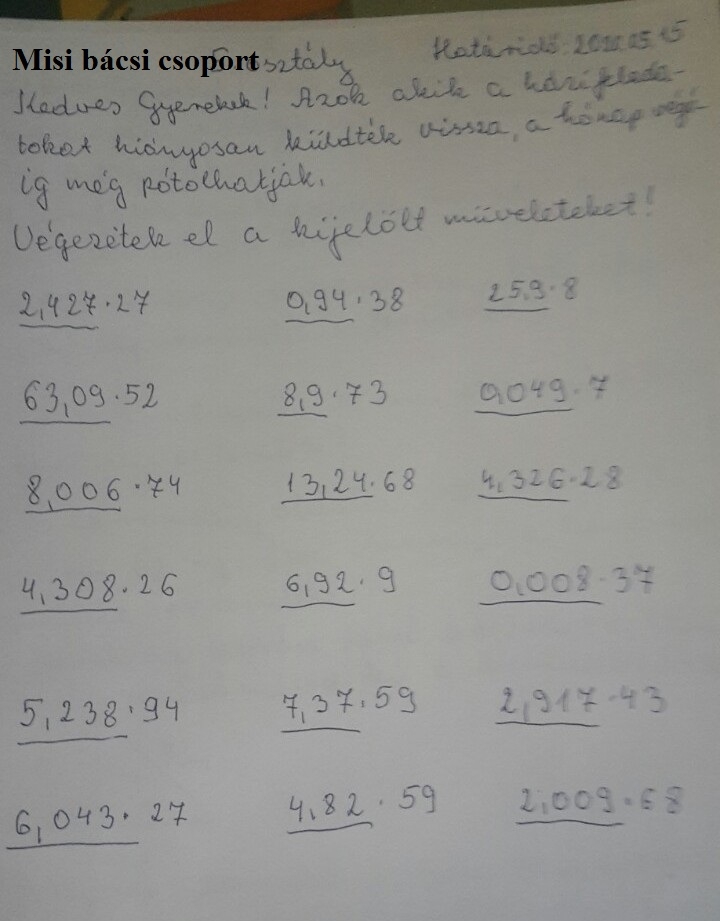 Misi bácsi csoport osztály Határidő:
Kedves Gyerekek! Azok akik a házifelada-
tokat hiányosan küldték vissza, a hónap végé-
ig még pótolhatják.
Végezétek el a kijelölt műveleteket!
2,427·27 0,94·38 25,9·8
63,09·52 8,9·73 0,049·7
8,006·74 13,24·68 4,326·28
4,308·26 6,92·9 0,008·37
5,238·94 7,37·59 2,917·43
6,043·27 4,82·59 2,009·68